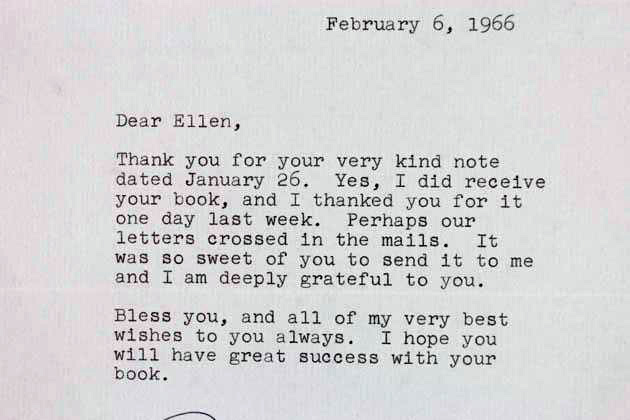 February 6, 1966
Dear Ellen,
Thank you for your very kind note
dated January 26.  Yes, I did receive
your book, and I thanked you for it
one day last week.  Perhaps our
letters crossed in the mails.  It
was so sweet of you to send it to me
and I am deeply grateful to you.
Bless you, and all of my very best
wishes to you always.  I hope you
will have great success with your
book.